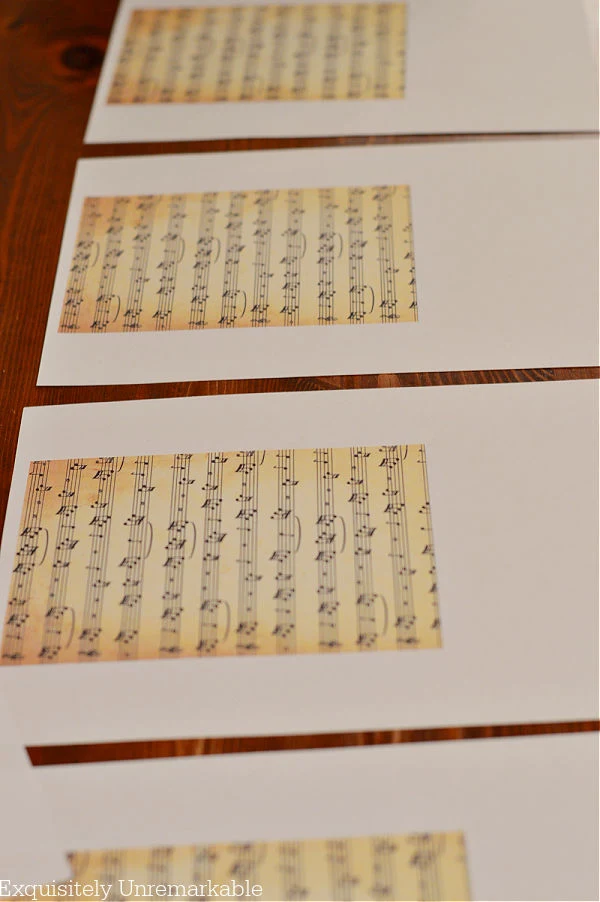 Exquisitely Unremarkable